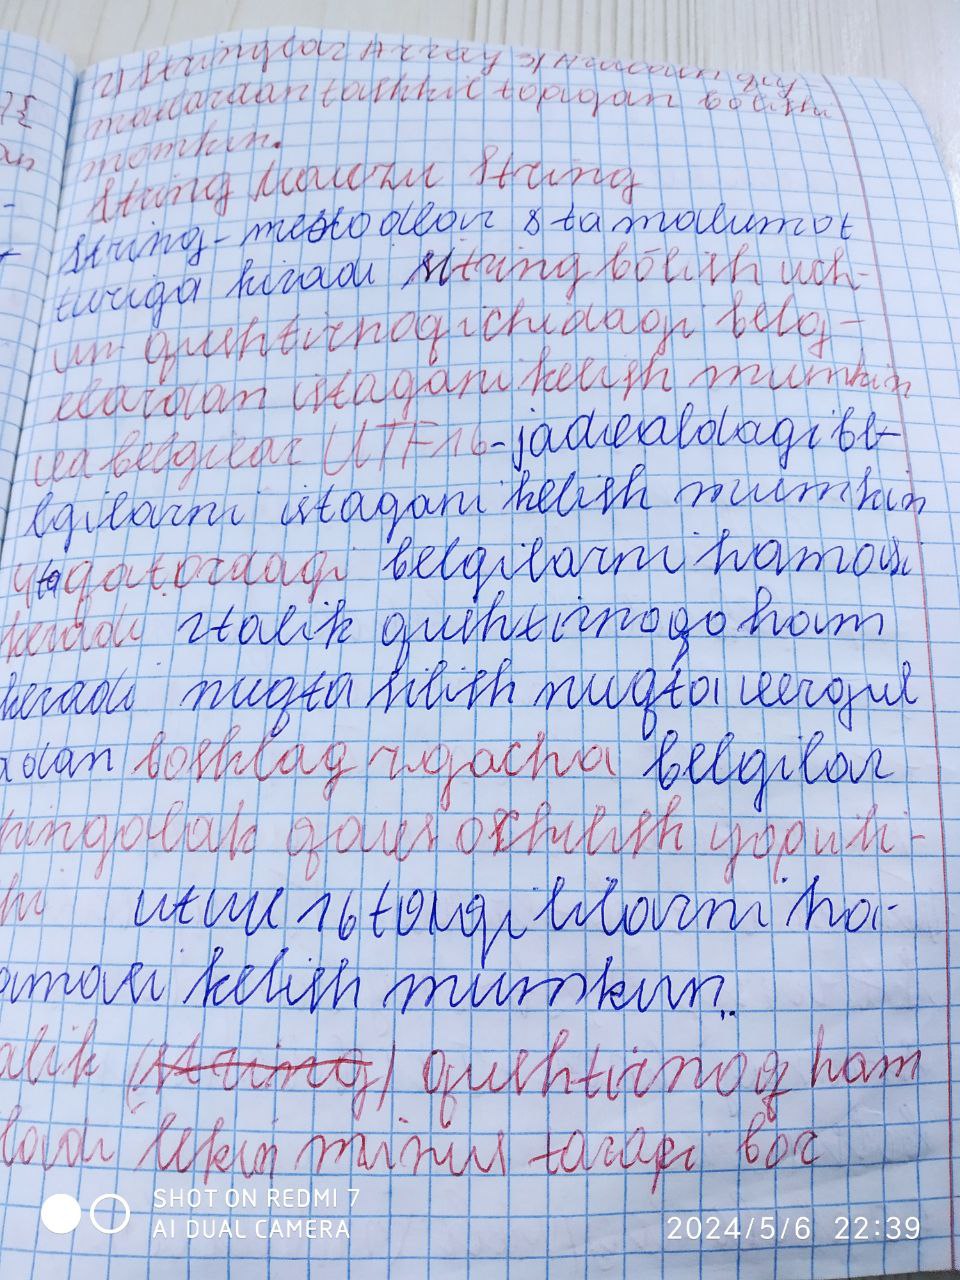 2) Stringlar Array 3) Aralash qiy-
matlardan tashkil topgan bõlishi
mõmkin.
String Mavzu String
String-metodlar 8 ta malumot
turiga kiradi String bõlish uch-
un qushtirnoq ichidagi belg-
ilardan istagani kelish mumkin
va belgilar UTF16-jadvaldagi be-
lgilarni istagani kelish mumkin
qatordagi belgilarni hamasi
kiradi 2talik qushtirnoqo ham
kiradi nuqta bilish nuqta vergul
dan boshlag 2gacha belgilar
ningolak qavs oshilish yopili-
shi utuv 16 tangi lilarni ha-
amasi kelish mumkin..
alik (string) qushtirnoq ham
ladi lekin minus tarapi bor
SHOT ON REDMI 7
AI DUAL CAMERA
2024/5/6 22:39